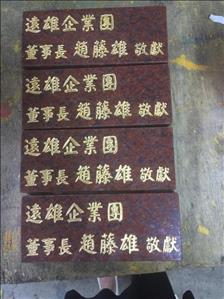 遠雄企業團
董事長 趙藤雄 敬獻
遠雄企業團
董事長 趙藤雄 敬獻
遠雄企業團
董事長 趙藤雄 敬獻
遠雄企業團
董事長 趙藤雄 敬獻